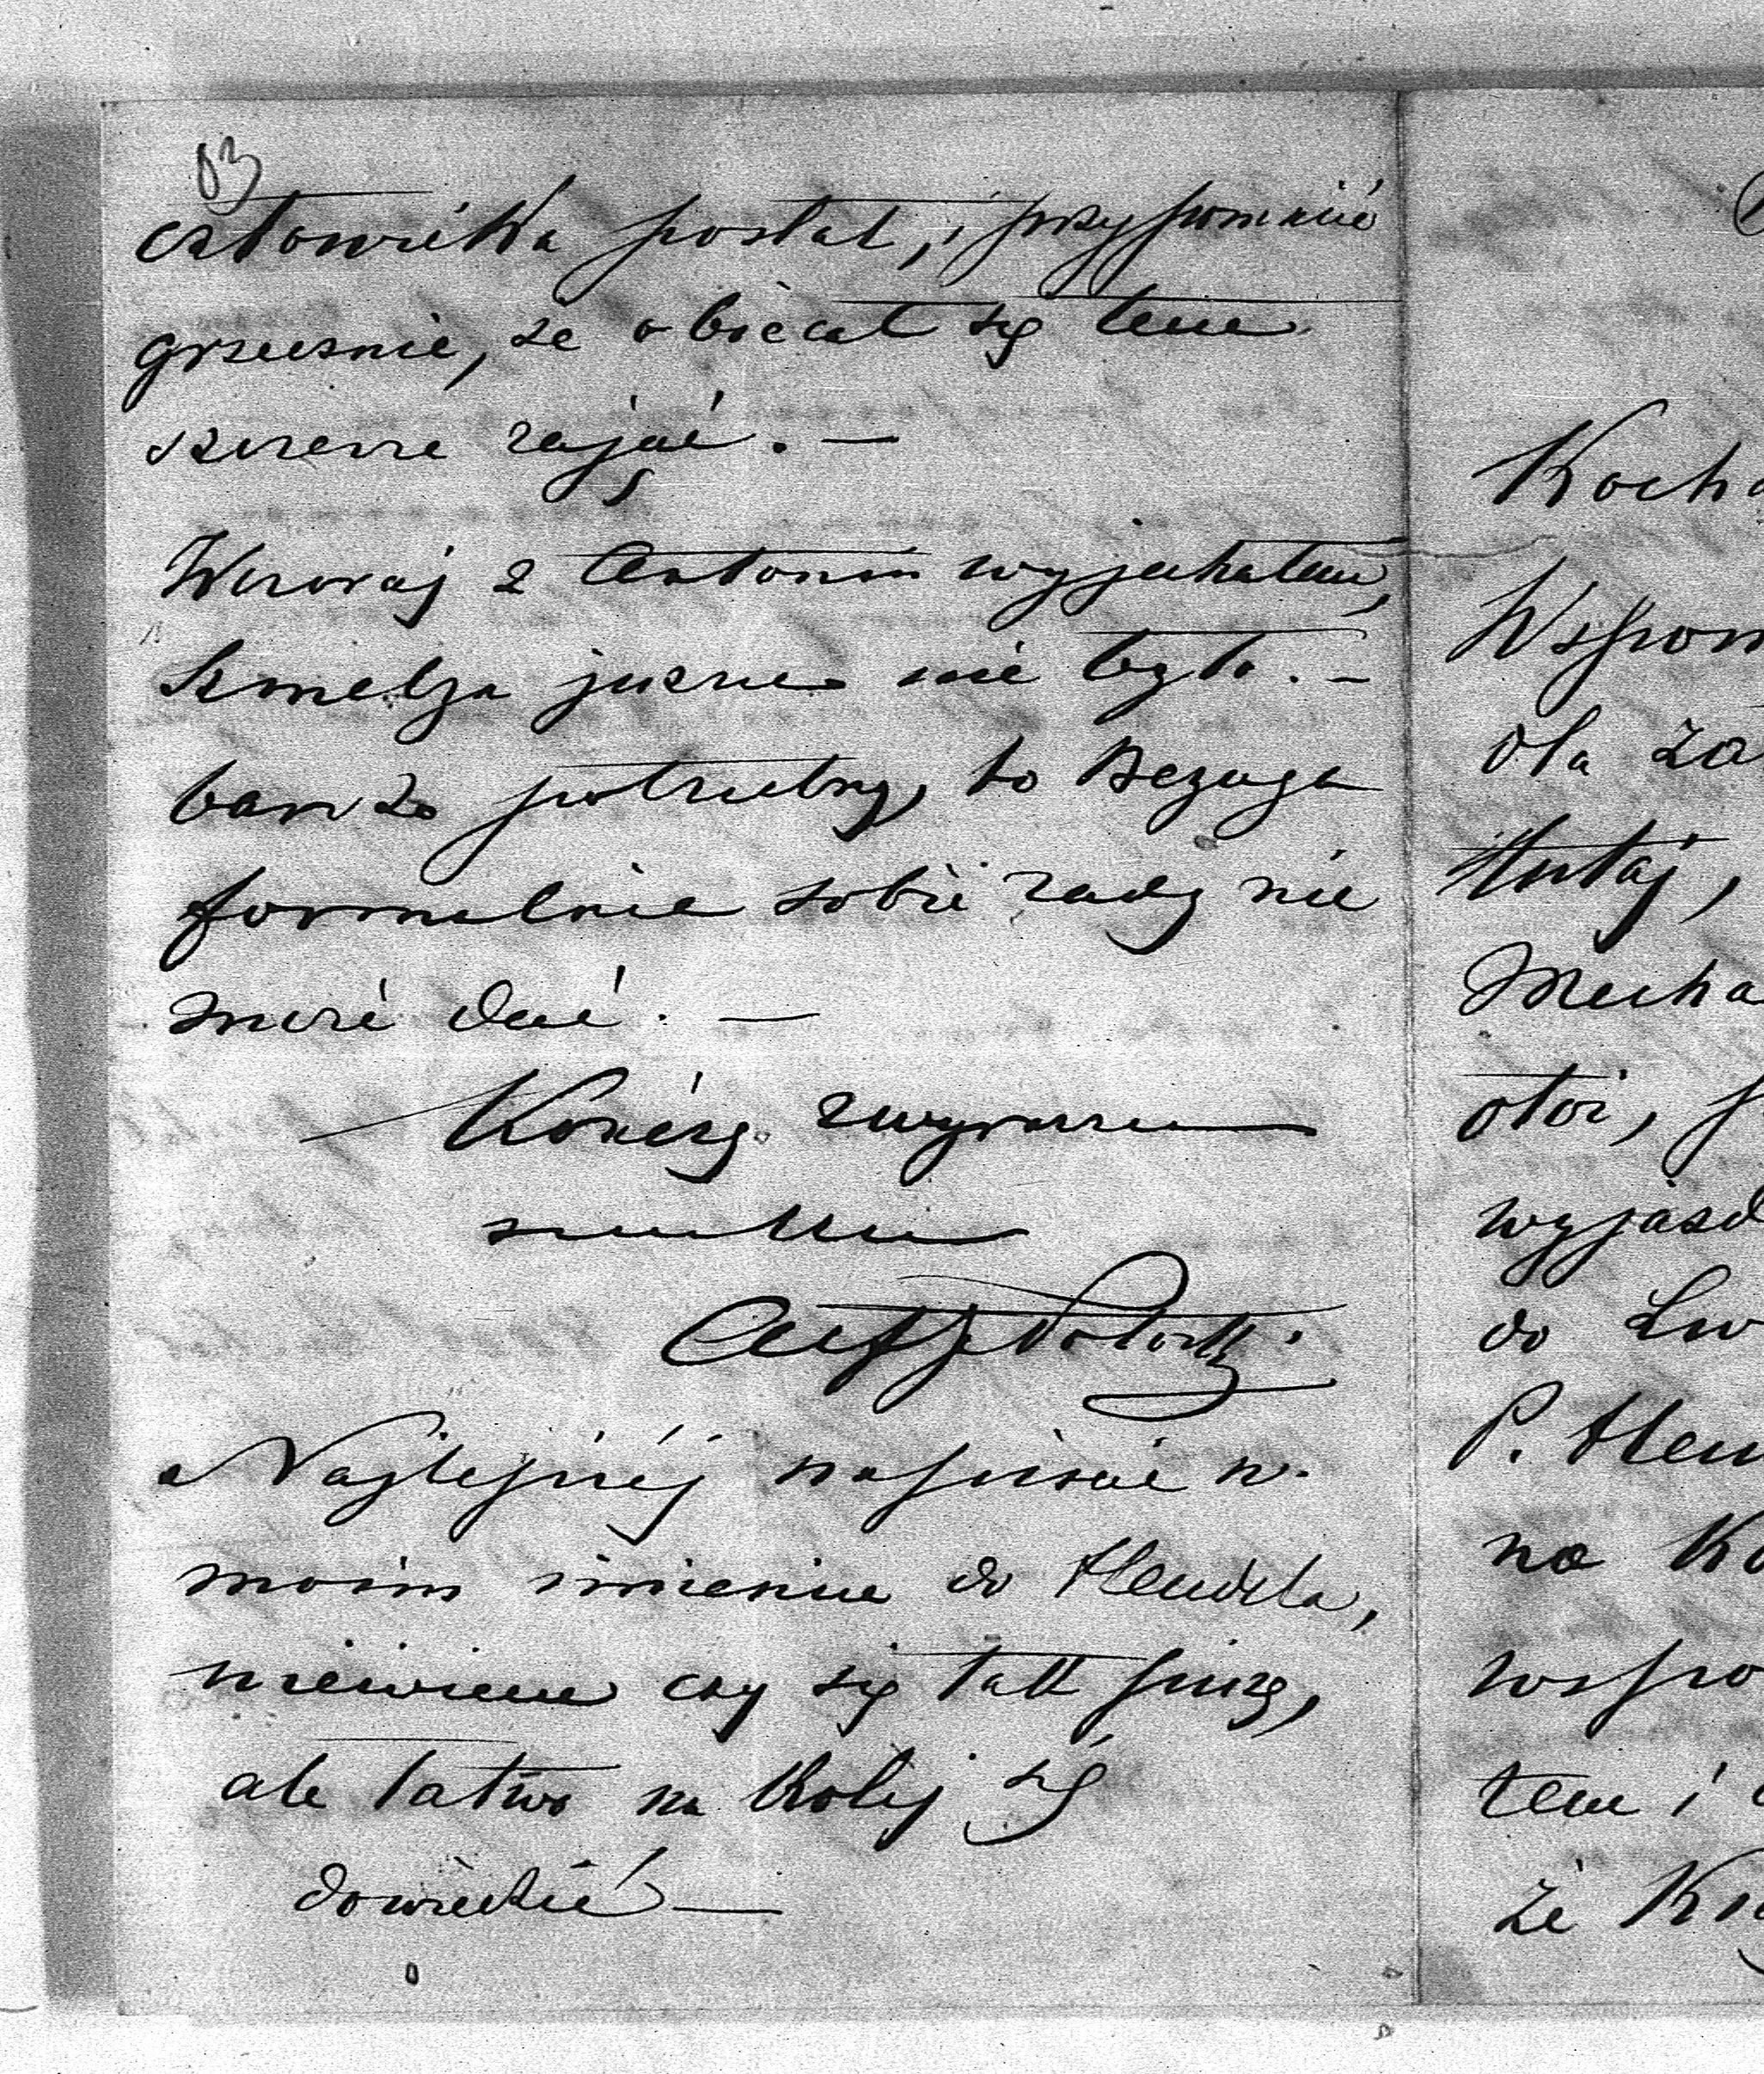 83
człowieka posłał, i przypomnieć
grzecznie, że obiecał się tem
szczerze zająć. —
Wczoraj z Antonin wyjechałem,
Szmelza jeszcze nie było. —
bardzo potrzebny, bo Bezuga
formalnie sobie rady nie
może dać. —
Kończę z wyrazem
szacunku
Alf Potocki
Najlepiéj napisać w
moim imieniu do Hendla,
niewiem czy się tak pisze,
ale łatwo na Kolej się
dowiedzieć —
Kocha
Wspom
dla za
tutaj,
Mecha
otoż, p
wyjazd
do Lw
P. Hen
na Ko
wspo
tem i
że Kr